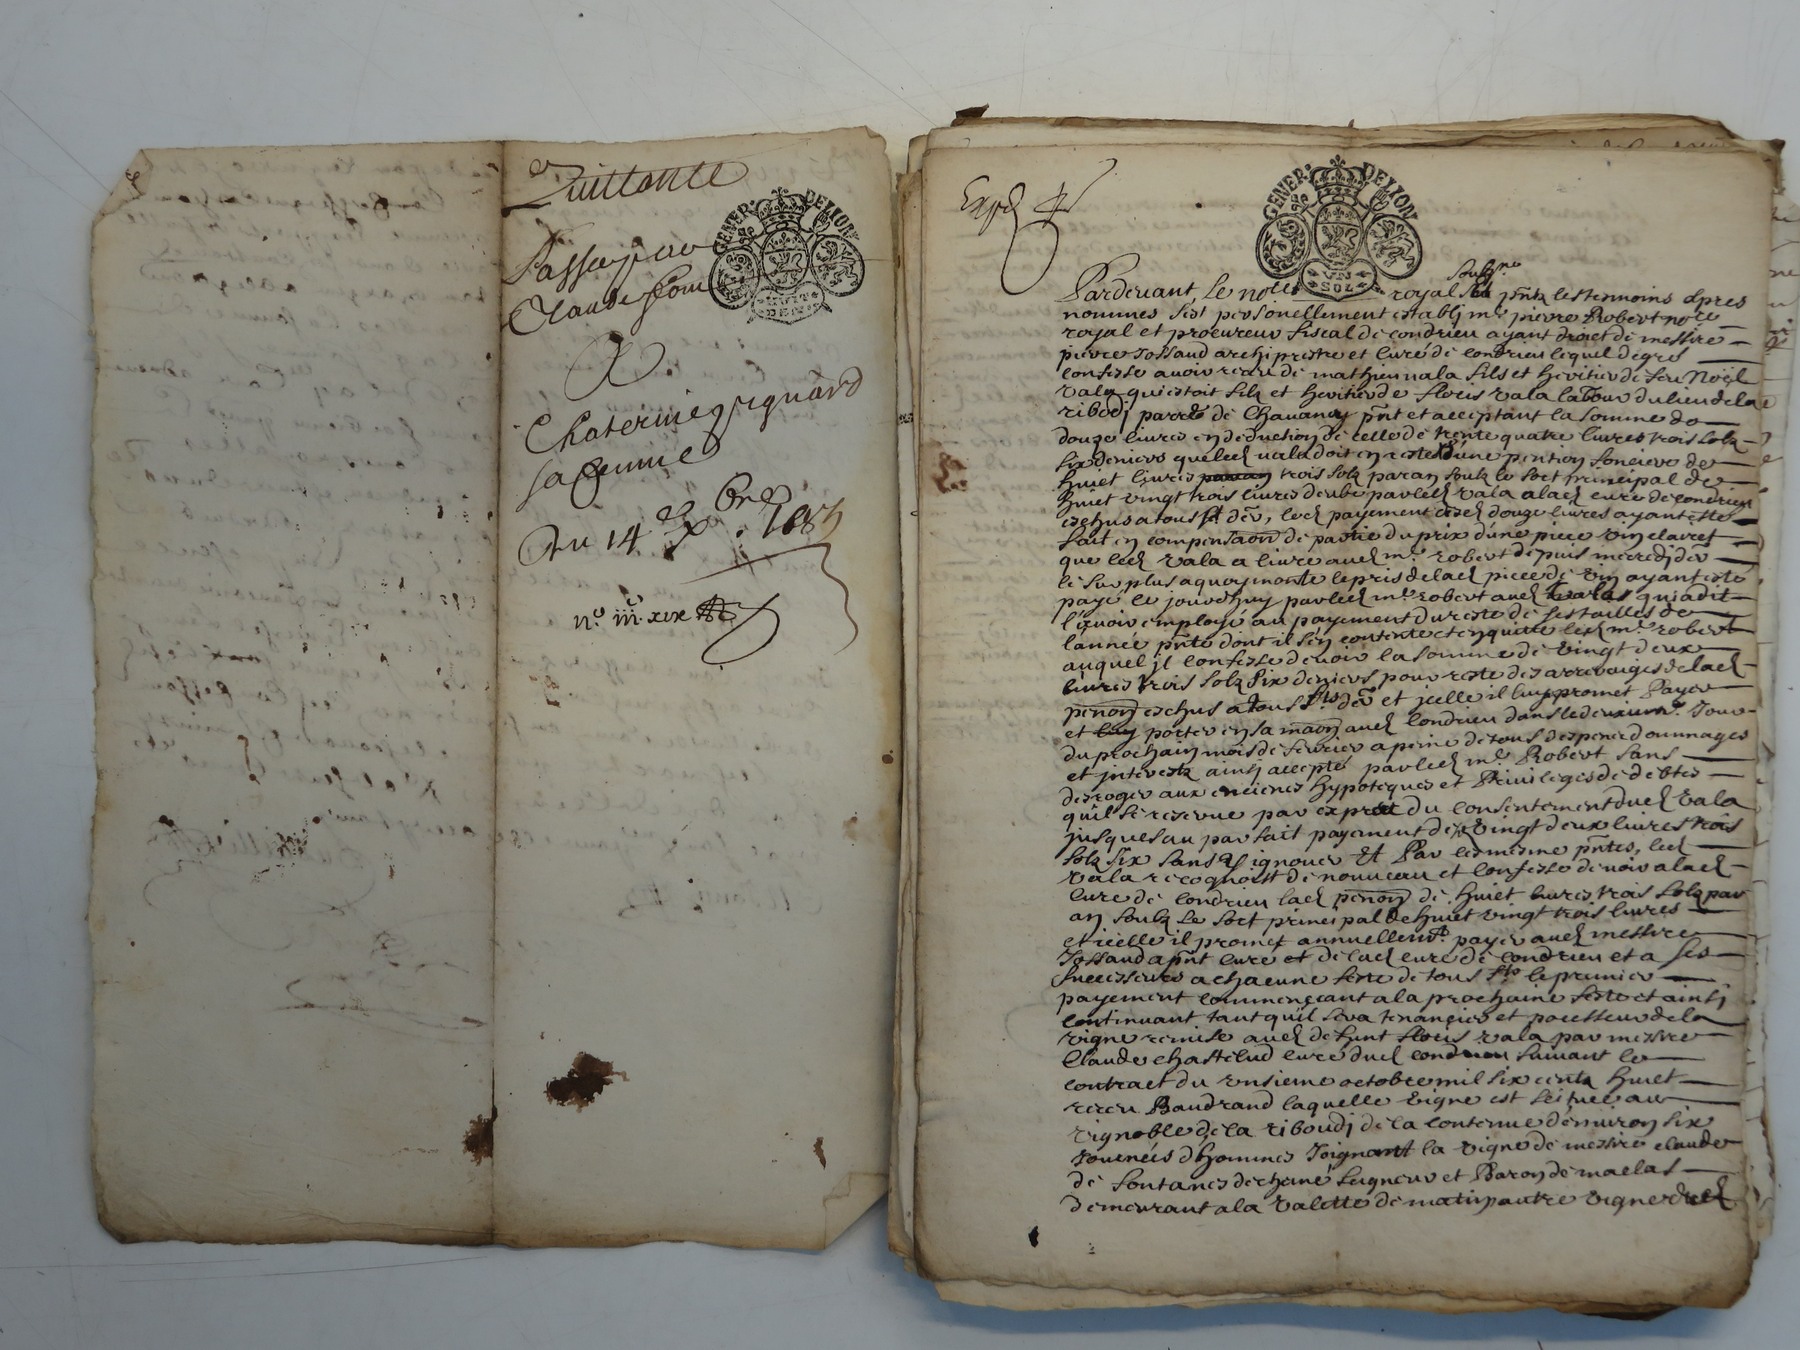 Quittance
GENER. DE LION
Passée par
Claude
HUIT
DEN.
A
Chaterine
sa femme
Du 14e Xbre 1683
n.o iiii.c xix
Expé
GENER. DE LION
UN
SOL
soubz.ne
Pardevant le no.re royal pñtz les temoins apres
nommes s'est personellement establj m.e pierre Robert no.re
royal et procureur fiscal de condrieu ayant droict de messire
pierre Jossaud archiprestre et curé de condrieu lequel de gres
confesse avoir receu de mathieu vala fils et heritier de feu Noël
vala qui estoit filz et heritier de floris vala labour du lieu de la
ribodj parr.e de Chavanay pñt et acceptant la somme de
douze livres en deduction de celle de trente quatre livres trois solz
six deniers que led vala doit en reste d'une pention fonciere de
huict livres trois solz par an soubz le sort principal de
huict vingt trois livres deube par led vala a lad cure de condrieu
eschus a tous st der, led payement desd douze livres ayant esté
fait en compensaon de partie du prix d'une piece vin clairet
que led vala a livré aud m.e robert depuis mercredj der
le surplus a quoy monte le pris de lad piece de vin ayant esté
payé le jourdhuy par led m.e robert aud vala qui a dit
l'avoir employé au payement du reste de ses tailles de
l'année pñte dont il s'en contente et en quitte led m.e robert
auquel jl confesse devoir la somme de vingt deux
livres trois solz six deniers pour reste des arreraiges de lad
penon eschus a tous st.s der et jcelle il luy promet payer
et porter en sa maon aud condrieu dans le deuxieme jour
du prochain mois de fevrier a peine de tous despens dommages
et jnterestz ainsj accepté par led m.e Robert sans
desroger aux encienes hypoteques et Privileges de debtes
qu'il se reserve par expres du consentement dud vala
jusques au parfait payement desd vingt deux livres trois
solz six sans y jgnover Et Par les mesme pñtes, led
vala recognoist de nouveau et confesse devoir a lad
cure de condrieu lad penon de huict livres trois solz par
an soubz le sort principal de huict vingt trois livres
et icelle il promet annuellem.t payer aud messire
Jossaud apñt curé et de lad cure de condrieu et a ses
successeurs a chacune feste de tous st.s le premier
payement commençant a la prochaine feste et ainsj
continuant tant qu'il sera tenancier et pocesseur de la
vigne remise aud defunt floris vala par messire
Claude chastelud curé dud condrieu suivant le
contract du unsieme octobre mil six centz huict
receu Baudrand laquelle vigne est scituée au
vignoble de la riboudj de la contenue d'environ six
journées d'hommes Joignant la vigne de messire claude
de fontanes de chemé seigneur et Baron de maclas
demeurant a la valette de matin autre vigne dud